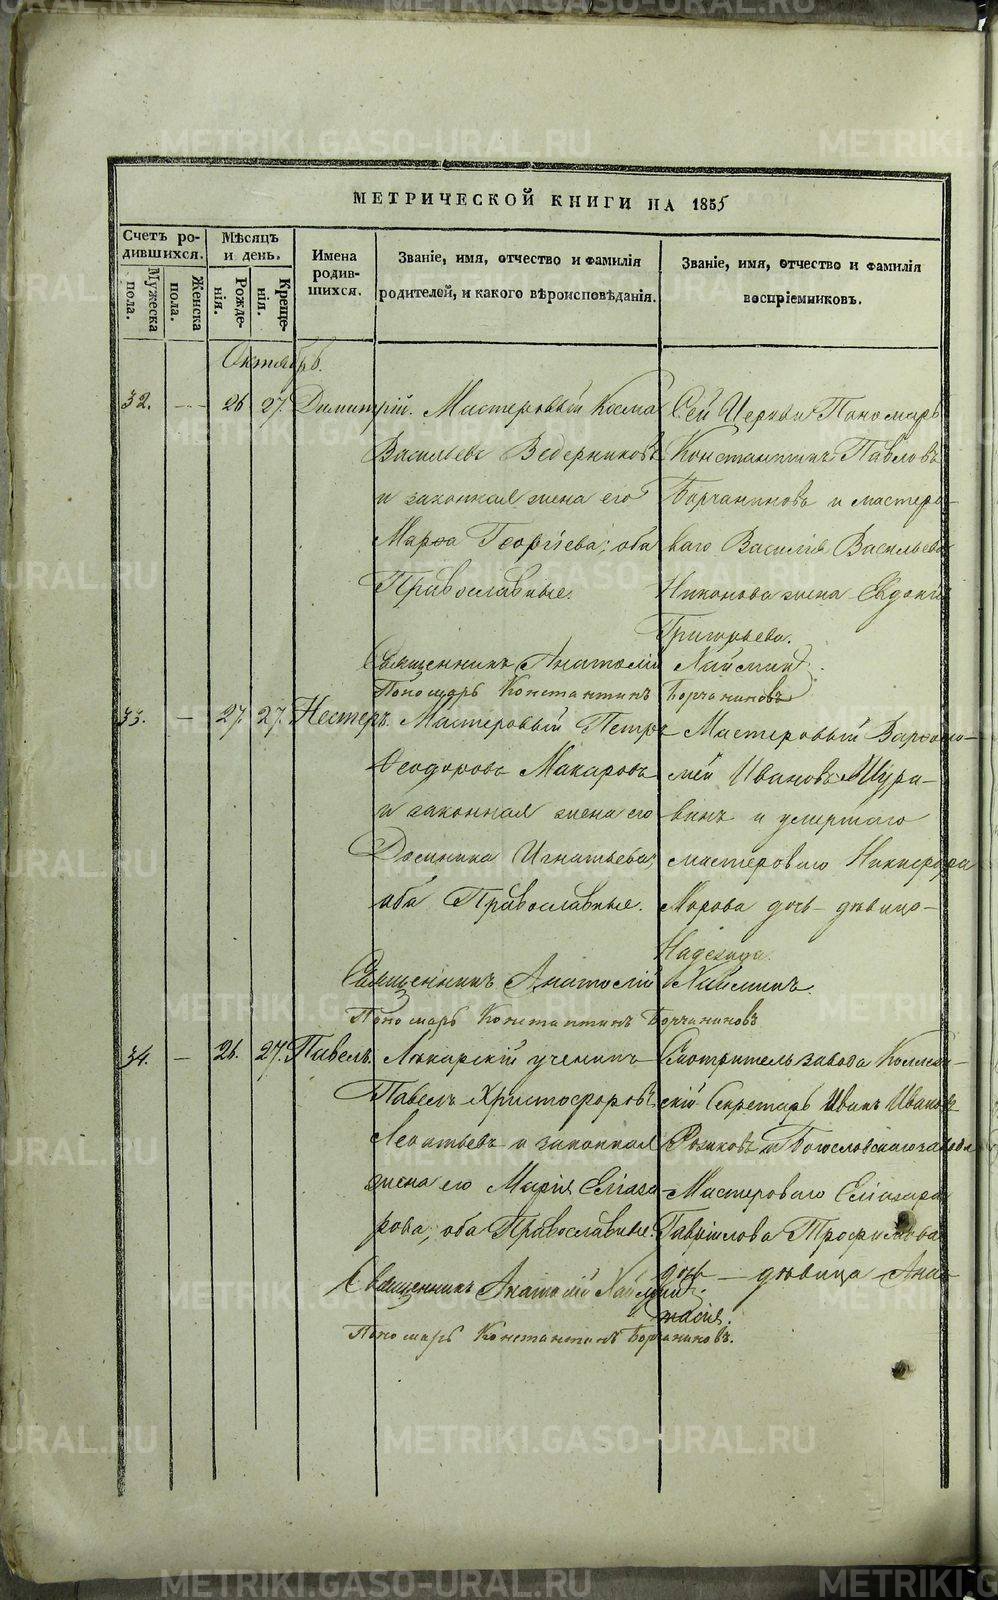 МЕТРИЧЕСКОЙ КНИГИ НА 1855
Счетъ ро-
дившихся.
Мужеска
пола.
Женска
пола.
Мѣсяцъ
и день.
Рожде-
нія.
Креще-
нія.
Имена
родив-
шихся.
Званіе, имя, отчество и фамилія
родителей, и какого вѣроисповѣданія.
Званіе, имя, отчество и фамилія
воспріемниковъ.
Октябрь.
32. — 26 27. Димитрій. Мастеровый Косма
Васильевъ Ведерниковъ
и законная жена его
Марѳа Георгіева; оба
Православные.
Сей Церкви Пономарь
Константинъ Павловъ
Борчаниновъ и мастеро-
ваго Василія Васильева
Никонова жена Евдокія
Григорьева.
Священникъ Анатолій
Пономарь Константинъ Борчаниновъ
33. — 27. 27. Несторъ. Мастеровый Петръ
Ѳеодоровъ Макаровъ
и законная жена его
Домника Игнатьева;
оба Православные.
Мастеровый Варѳоло-
мей Ивановъ Шура-
винъ и умершаго
мастероваго Никифора
Морова дочь - дѣвица -
Надежда.
Священникъ Анатолій
Пономарь Константинъ Борчаниновъ
34. — 26. 27. Павелъ. Лѣкарскій ученикъ
Павелъ Христофоровъ
Леонтьевъ и законная
жена его Марія Еліаза-
рова, оба Православные.
Смотритель завода Коллеж-
скій Секретарь Иванъ Ивановъ
и Богословскаго завода
Мастероваго Еліазара
Гавріилова Трофимова
дочь — дѣвица Анас-
тасія.
Священникъ Анатолій
Пономарь Константинъ Борчаниновъ.
METRIKI.GASO-URAL.RU